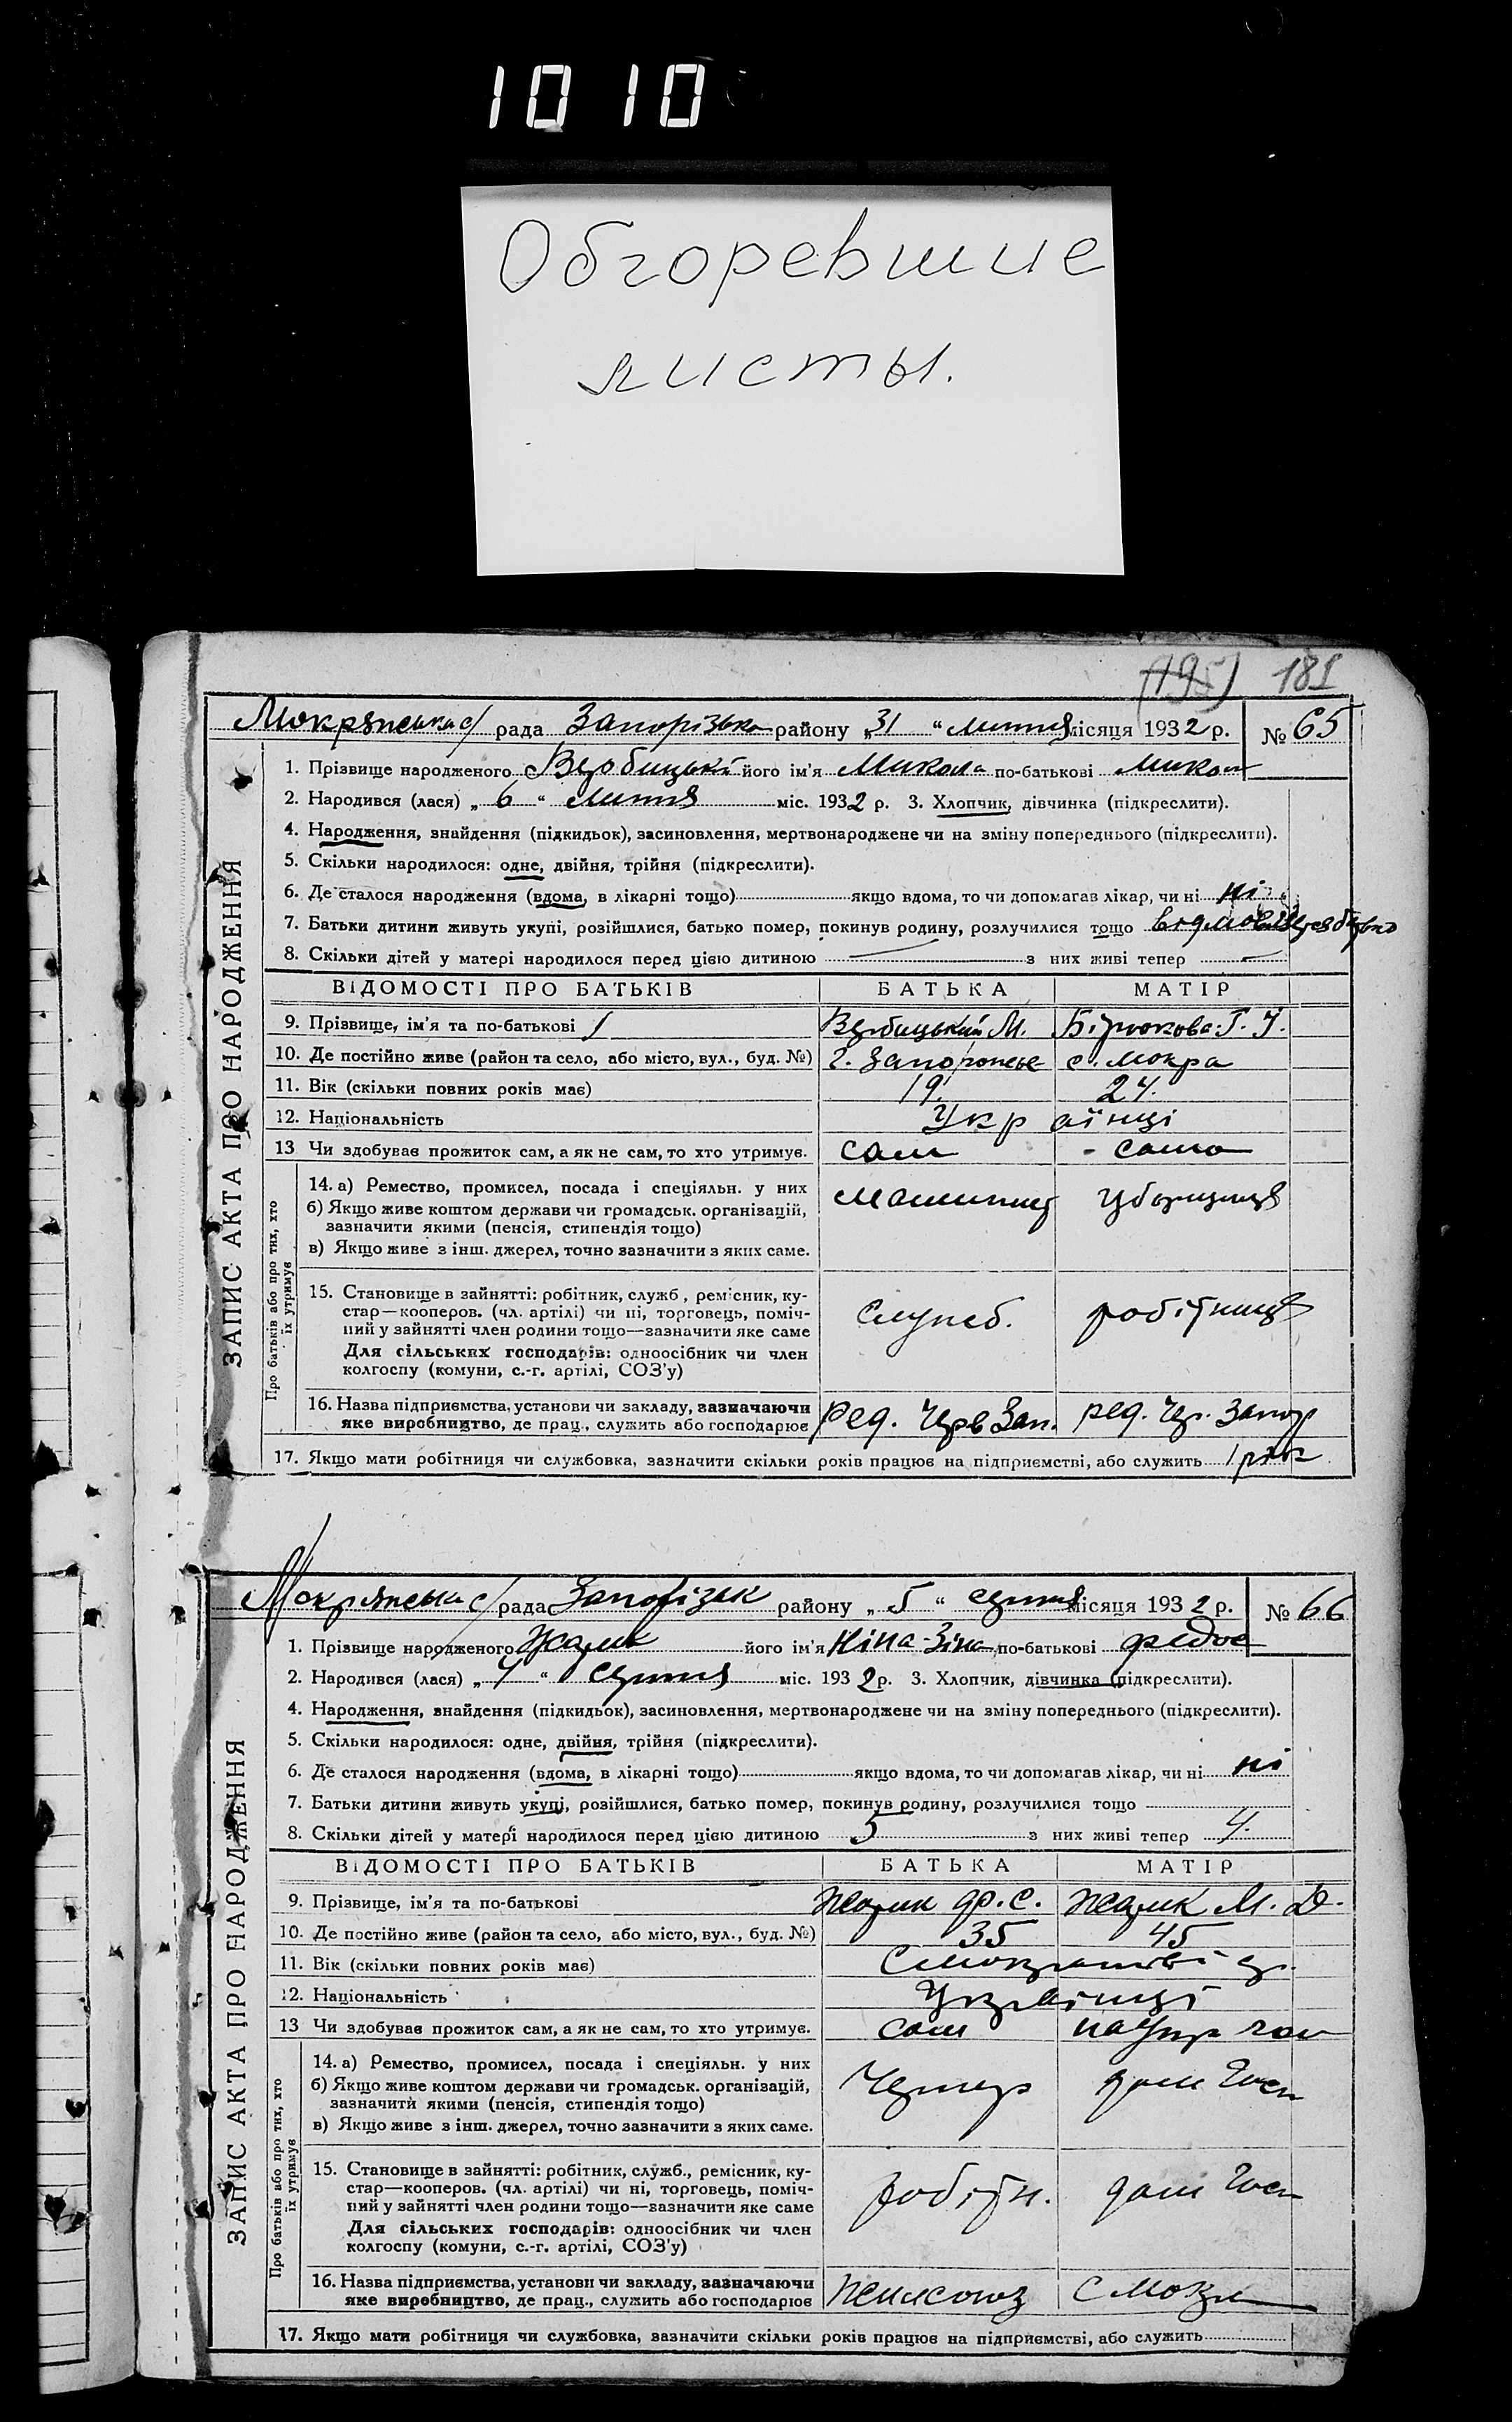 1010
Обгоревшие
листы.
(195) 181
Мокрянська с/ рада Запорізька району „31“ липня місяця 1932 р. № 65
1. Прізвище народженого Вербицький його ім'я Микола по-батькові Микол
2. Народився (лася) „6“ липня міс. 1932 р. 3. Хлопчик, дівчинка (підкреслити).
4. Народження, знайдення (підкидьок), засиновлення, мертвонароджене чи на зміну попереднього (підкреслити).
5. Скільки народилося: одне, двійня, трійня (підкреслити).
6. Де сталося народження (вдома, в лікарні тощо) якщо вдома, то чи допомагав лікар, чи ні ні
7. Батьки дитини живуть укупі, розійшлися, батько помер, покинув родину, розлучилися тощо
8. Скільки дітей у матері народилося перед цією дитиною — з них живі тепер —
ВІДОМОСТІ ПРО БАТЬКІВ БАТЬКА МАТІР
9. Прізвище, ім'я та по-батькові Вербицький М. Бірюкова Г. У.
10. Де постійно живе (район та село, або місто, вул., буд. №) г. Запоріжье с. Мокра
11. Вік (скільки повних років має) 19. 24.
12. Національність Українці
13 Чи здобував прожиток сам, а як не сам, то хто утримує. сам - сама
14. а) Ремество, промисел, посада і спеціяльн. у них уборщиця
б) Якщо живе коштом держави чи громадськ. організацій,
зазначити якими (пенсія, стипендія тощо)
в) Якщо живе з інш. джерел, точно зазначити з яких саме.
15. Становище в зайнятті: робітник, служб, ремісник, ку-
стар—кооперов. (чл. артілі) чи ні, торговець, поміч- служб. робітниця
ний у зайнятті член родини тощо—зазначити яке саме
Для сільських господарів: одноосібник чи член
колгоспу (комуни, с.-г. артілі, СОЗ'у)
16. Назва підприємства, установи чи закладу, зазначаючи
яке виробництво, де прац., служить або господарює Ред. Черв Зап. ред. Чер. Запор
17. Якщо мати робітниця чи службовка, зазначити скільки років працює на підприємстві, або служить 1 рік
ЗАПИС АКТА ПРО НАРОДЖЕННЯ
Про батьків або про тих, хто
їх утримує
Мокрянська с/ рада Запорізьк району „5“ серпня місяця 1932 р. № 66
1. Прізвище народженого його ім'я Ніна-Зіна по-батькові Федос
2. Народився (лася) „4“ серпня міс. 1932 р. 3. Хлопчик, дівчинка (підкреслити).
4. Народження, знайдення (підкидьок), засиновлення, мертвонароджене чи на зміну попереднього (підкреслити).
5. Скільки народилося: одне, двійня, трійня (підкреслити).
6. Де сталося народження (вдома, в лікарні тощо) якщо вдома, то чи допомагав лікар, чи ні ні
7. Батьки дитини живуть укупі, розійшлися, батько помер, покинув родину, розлучилися тощо
8. Скільки дітей у матері народилося перед цією дитиною 5 з них живі тепер 4.
ВІДОМОСТІ ПРО БАТЬКІВ БАТЬКА МАТІР
9. Прізвище, ім'я та по-батькові Ф. С. М. Д.
10. Де постійно живе (район та село, або місто, вул., буд. №) 35 45
11. Вік (скільки повних років має)
12. Національність Українці
13 Чи здобував прожиток сам, а як не сам, то хто утримує. сам
14. а) Ремество, промисел, посада і спеціяльн. у них дом госп
б) Якщо живе коштом держави чи громадськ. організацій,
зазначити якими (пенсія, стипендія тощо)
в) Якщо живе з інш. джерел, точно зазначити з яких саме.
15. Становище в зайнятті: робітник, служб., ремісник, ку-
стар—кооперов. (чл. артілі) чи ні, торговець, поміч- робітн. дом госп
ний у зайнятті член родини тощо—зазначити яке саме
Для сільських господарів: одноосібник чи член
колгоспу (комуни, с.-г. артілі, СОЗ'у)
16. Назва підприємства, установи чи закладу, зазначаючи
яке виробництво, де прац., служить або господарює Жилсоюз
17. Якщо мати робітниця чи службовка, зазначити скільки років працює на підприємстві, або служить
ЗАПИС АКТА ПРО НАРОДЖЕННЯ
Про батьків або про тих, хто
їх утримує